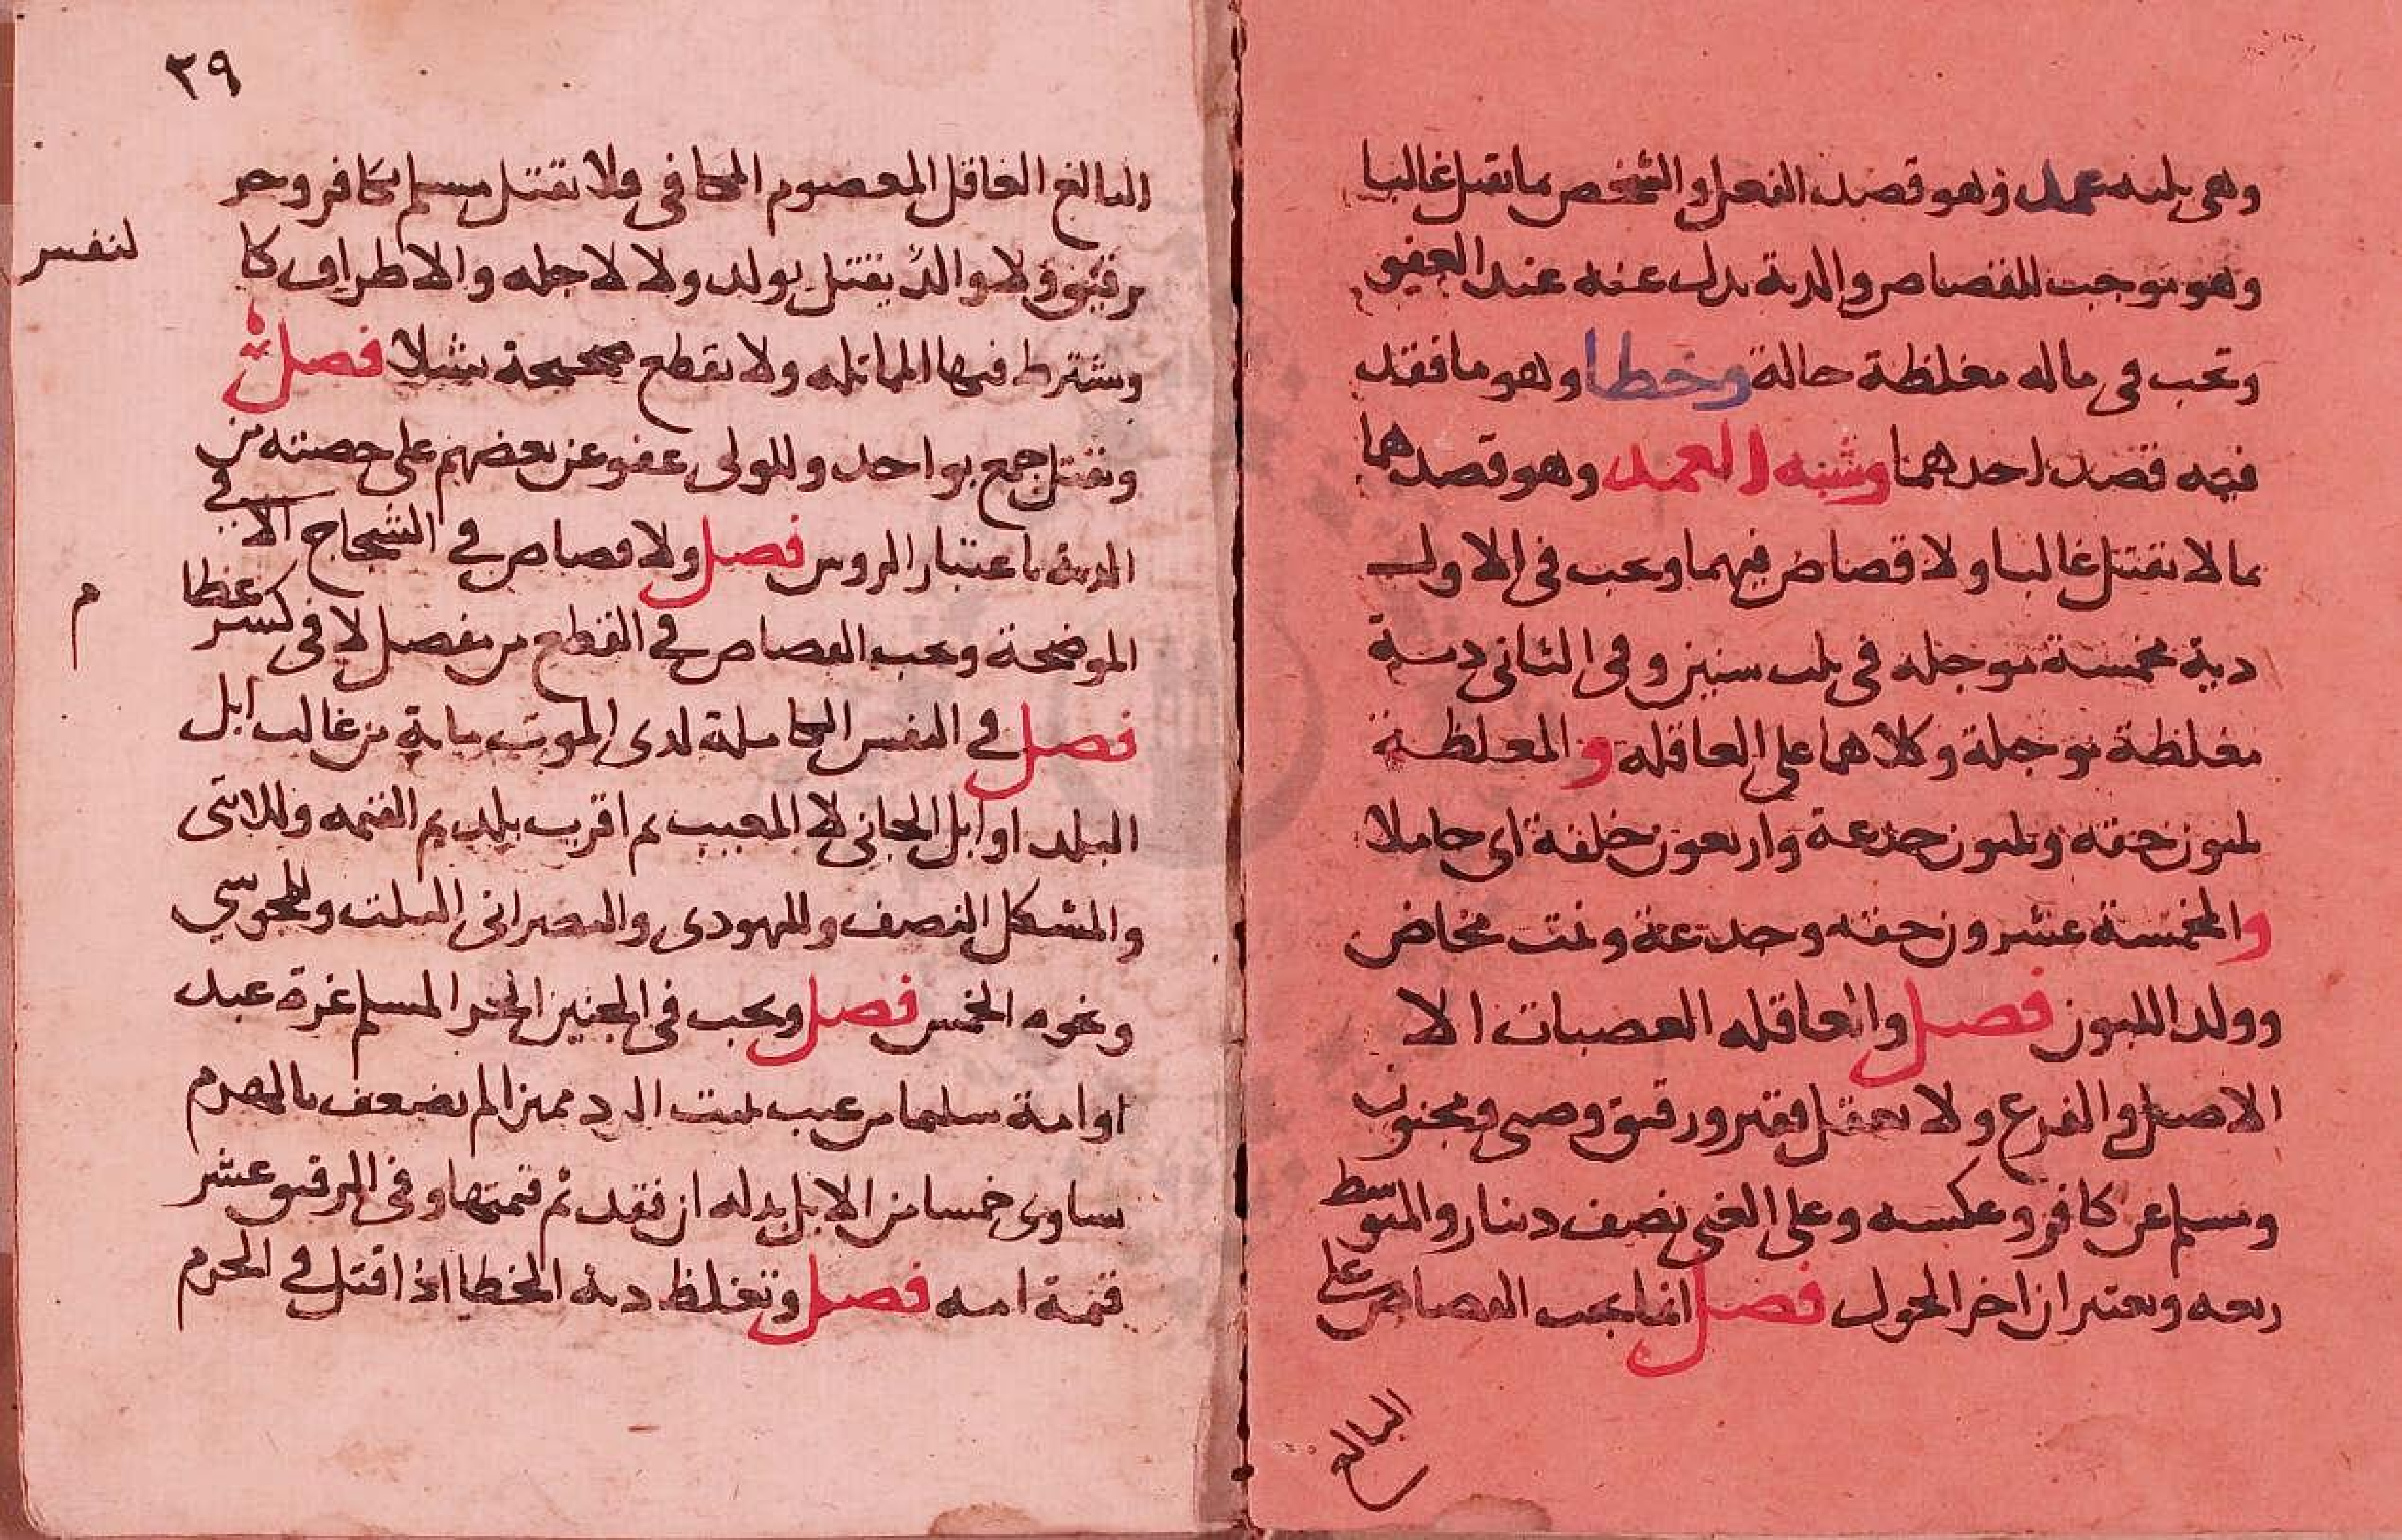 وهي ثلثه عمد وهو قصد الفعل والشخص بما يقتل غالبا
وهو موجب للقصاص والدية بدل عنه عند العفو
وتجب في ماله مغلظة حالة وخطا وهو ما فقد
فيه قصد احدهما وشبه العمد وهو قصدهما
بما لا يقتل غالبا ولا قصاص فيهما ويجب في الاول
دية مخمسة موجله في ثلث سنين وفي الثاني دية
مغلظة موجلة وكلاهما على العاقله والمغلظة
ثلثون حقه وثلثون جذعة واربعون خلفة اى حاملا
والمخمسة عشرون حقه وجذعة وبنت مخاض
وولد اللبون فصل والعاقله العصبات الا
الاصل والفرع ولا يعقل فقير ورقيق وصبى ومجنون
ومسلم عن كافر وعكسه وعلى الغنى نصف دينار والمتوسط
ربعه ويعتبران اخر الحول فصل انما يجب القصاص على
البالغ
٣٩
البالغ العاقل المعصوم المكافى ولا يقتل مسلم بكافر وحر
برقيق ولا والد يقتل بولد ولا لاجله والاطراف كا
لنفس
ويشترط فيها المماثله ولا يقطع صحيحة بشلا فصل
ويقتل جمع بواحد وللولى عفو عن بعضهم على حصته من
الدية باعتبار الروس فصل ولا قصاص في الشجاج الا في
الموضحة ويجب القصاص في القطع من مفصل لا في كسر عظا
م
فصل في النفس الكاملة لدى الموت ماية من غالب ابل
البلد او ابل الجاني لا المعيب ثم اقرب بلد ثم القيمه وللانثى
والمشكل النصف ولليهودى والنصراني الثلث وللمجوسي
ونحوه الخمس فصل ويجب في الجنين الحر المسلم غرة عبد
او امة سليما من عيب يثبت الرد مميزا لم يضعف بالهرم
يساوى خمسا من الابل بدله ان فقد ثم قيمتها وفي الرقيق عشر
قيمة امه فصل وتغلظ دية الخطا اذا قتل في الحرم